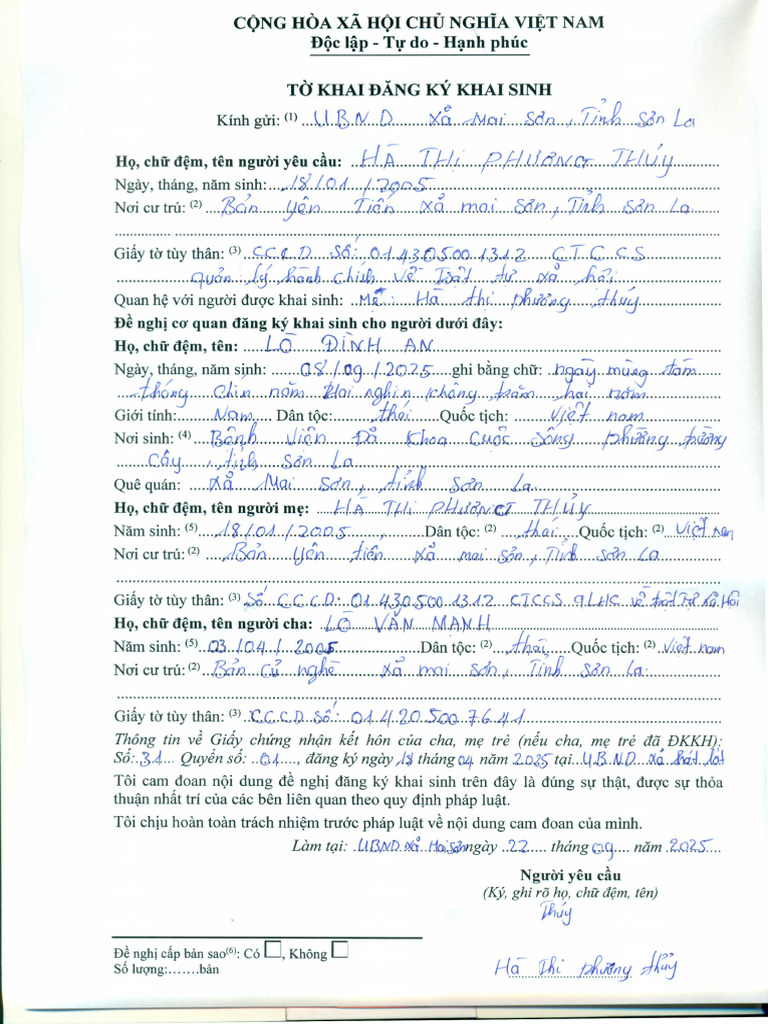 CỘNG HÒA XÃ HỘI CHỦ NGHĨA VIỆT NAM
Độc lập - Tự do - Hạnh phúc
TỜ KHAI ĐĂNG KÝ KHAI SINH
Kính gửi: (1) UBND xã Mai Sơn, Tỉnh Sơn La
Họ, chữ đệm, tên người yêu cầu: HÀ THỊ PHƯƠNG THÚY
Ngày, tháng, năm sinh: 18/01/2005
Nơi cư trú: (2) Bản Yên Tiến xã mai sơn, Tỉnh sơn La
Giấy tờ tùy thân: (3) CCCD số: 014305001312 CTCCS
quản lý hành chính về trật tự xã hội
Quan hệ với người được khai sinh: Mẹ: Hà thị phương thúy
Đề nghị cơ quan đăng ký khai sinh cho người dưới đây:
Họ, chữ đệm, tên: LÒ ĐÌNH AN
Ngày, tháng, năm sinh: 08/09/2025 ghi bằng chữ: ngày mùng tám
tháng chín năm Hai nghìn không trăm hai năm
Giới tính: Nam Dân tộc: thái Quốc tịch: việt nam
Nơi sinh: (4) Bệnh Viện Đa Khoa Cuộc Sống phường
Cây, tỉnh Sơn La
Quê quán: xã Mai Sơn, tỉnh Sơn La
Họ, chữ đệm, tên người mẹ: HÀ THỊ PHƯƠNG THỦY
Năm sinh: (5) 18/01/2005, Dân tộc: (2) thái Quốc tịch: (2) Việt Nam
Nơi cư trú: (2) Bản yên tiến xã mai sơn, Tỉnh sơn La
Giấy tờ tùy thân: (3) Số CCCD: 014305001312 CTCCS QLHC về trật Tự Xã Hội
Họ, chữ đệm, tên người cha: LÒ VĂN MẠNH
Năm sinh: (5) 03/04/2005 Dân tộc: (2) thái Quốc tịch: (2) Việt nam
Nơi cư trú: (2) Bản củ nghè xã mai sơn, Tỉnh sơn La
Giấy tờ tùy thân: (3) CCCD số: 014205007641
Thông tin về Giấy chứng nhận kết hôn của cha, mẹ trẻ (nếu cha, mẹ trẻ đã ĐKKH):
Số: 31 Quyển số: 01, đăng ký ngày 18 tháng 04 năm 2025 tại UBND xã hát lót
Tôi cam đoan nội dung đề nghị đăng ký khai sinh trên đây là đúng sự thật, được sự thỏa
thuận nhất trí của các bên liên quan theo quy định pháp luật.
Tôi chịu hoàn toàn trách nhiệm trước pháp luật về nội dung cam đoan của mình.
Làm tại: UBND xã Mai Sơn ngày 22 tháng 09 năm 2025
Người yêu cầu
(Ký, ghi rõ họ, chữ đệm, tên)
Thúy
Đề nghị cấp bản sao(6): Có , Không
Số lượng:.......bản
Hà Thị phương thủy